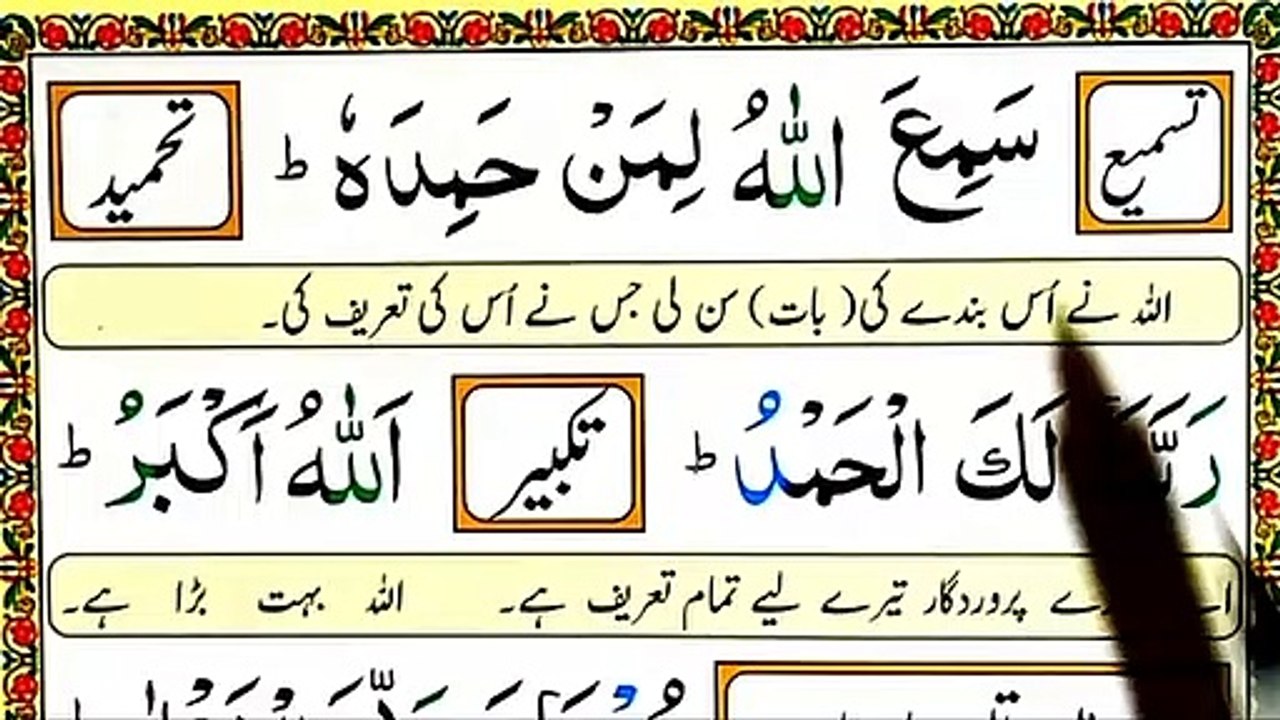 تسمیع سَمِعَ اللّٰهُ لِمَنْ حَمِدَهٗ ط تحمید
اللہ نے اُس بندے کی (بات) سن لی جس نے اُس کی تعریف کی۔
لَكَ الْحَمْدُ ط تکبیر اَللّٰهُ اَكْبَرُ ط
پروردگار تیرے لیے تمام تعریف ہے۔ اللہ بہت بڑا ہے۔